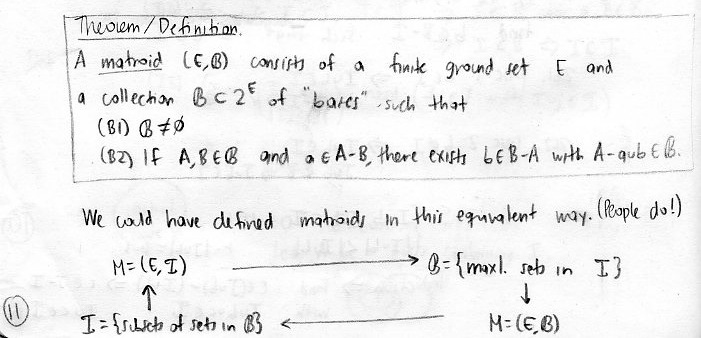 Theorem/Definition.
A matroid (E,B) consists of a finite ground set E and
a collection B ⊂ 2^E of "bases" such that
(B1) B ≠ ∅
(B2) If A,B ∈ B and a ∈ A-B, there exists b ∈ B-A with A-a∪b ∈ B.
We could have defined matroids in this equivalent way. (People do!)
M=(E,I) → B={maxl. sets in I}
↑ ↓
I={subsets of sets in B} ← M=(E,B)
11